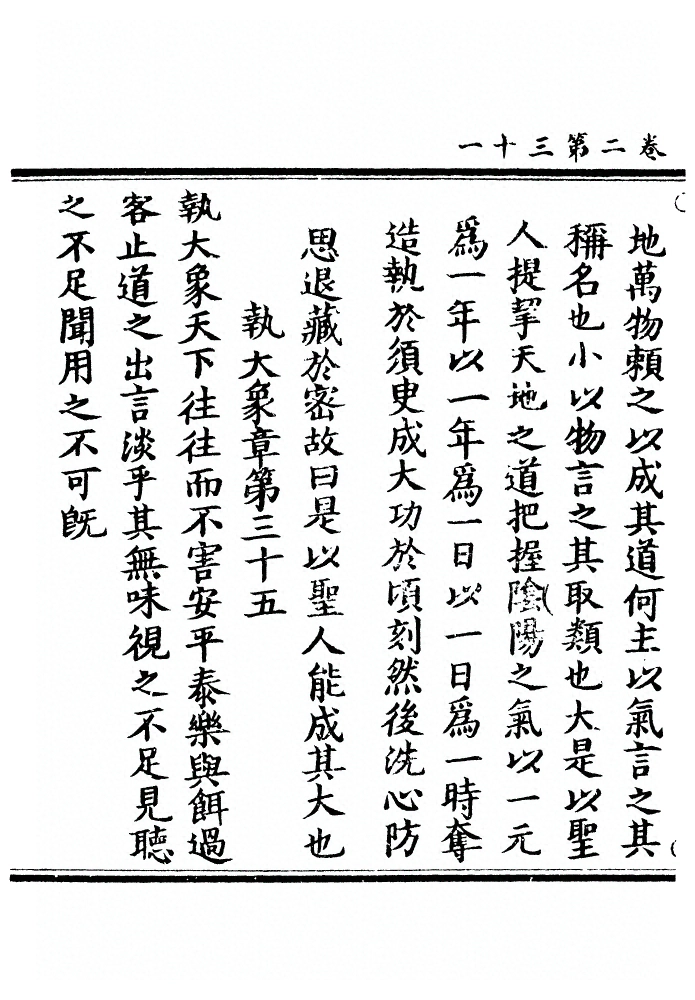 卷二第三十一
地萬物賴之以成其道何主以氣言之其
稱名也小以物言之其取類也大是以聖
人提挈天地之道把握陰陽之氣以一元
爲一年以一年爲一日以一日爲一時奪
造執於須臾成大功於頃刻然後洗心防
思退藏於密故曰是以聖人能成其大也
執大象章第三十五
執大象天下往往而不害安平泰樂與餌過
客止道之出言淡乎其無味視之不足見聽
之不足聞用之不可旣